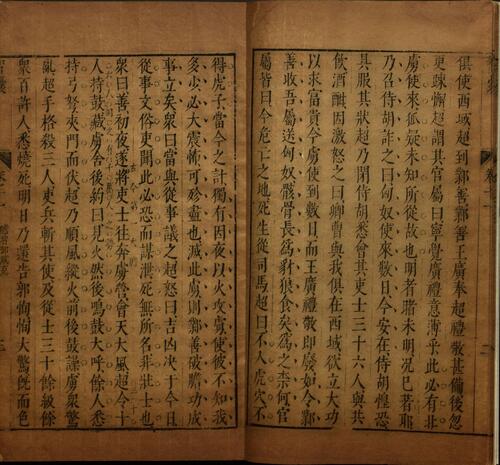 俱使西域超到鄯善鄯善王廣奉超禮敬甚備後忽
更疎懈超謂其官屬曰寧覺廣禮意薄乎此必有北
虜使來狐疑未知所從故也明者睹未明況已著耶
乃召侍胡詐之曰匈奴使來數日今安在侍胡惶恐
具服其狀超乃閉侍胡悉會其吏士三十六人與共
飲酒酣因激怒之曰卿曹與我俱在西域欲立大功
以求富貴今虜使到數日而王廣禮敬即廢如今鄯
善收吾屬送匈奴骸骨長為豺狼食矣為之柰何官
屬皆曰今危亡之地死生從司馬超曰不入虎穴不
得虎子當今之計獨有因夜以火攻虜使彼不知我
多少必大震怖可殄盡也滅此虜則鄯善破膽功成
事立矣眾曰當與從事議之超怒曰吉凶決于今日
從事文俗吏聞此必恐而謀泄死無所名非壯士也
眾曰善初夜遂將吏士往奔虜營會天大風超令十
人持鼓藏虜舍後約曰見火然後鳴鼓大呼餘人悉
持弓弩夾門而伏超乃順風縱火前後鼓譟虜眾驚
亂超手格殺三人吏兵斬其使及從士三十餘級餘
眾百許人悉燒死明日乃還告郭恂恂大驚既而色